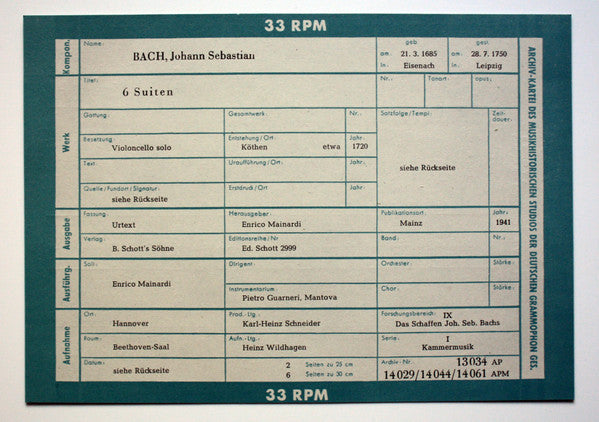 33 RPM
Kompon.
Name:
BACH, Johann Sebastian
geb.
am: 21. 3. 1685
in: Eisenach
gest.
am: 28. 7. 1750
in: Leipzig
Werk
Titel:
6 Suiten
Nr.:
Tonart:
opus:
Gattung:
Gesamtwerk:
Nr.:
Satzfolge/Tempi:
Zeit-
dauer:
siehe Rückseite
Besetzung:
Violoncello solo
Entstehung/Ort:
Köthen
etwa
Jahr:
1720
Text:
Uraufführung/Ort:
Jahr:
Quelle/Fundort/Signatur:
siehe Rückseite
Erstdruck/Ort:
Jahr:
Ausgabe
Fassung:
Urtext
Herausgeber:
Enrico Mainardi
Publikationsort:
Mainz
Jahr:
1941
Verlag:
B. Schott's Söhne
Editionsreihe/Nr
Ed. Schott 2999
Band:
Nr.:
Ausführg.
Soli:
Enrico Mainardi
Dirigent:
Orchester:
Stärke:
Instrumentarium:
Pietro Guarneri, Mantova
Chor:
Stärke:
Aufnahme
Ort:
Hannover
Prod.-Ltg.:
Karl-Heinz Schneider
Forschungsbereich:
IX
Das Schaffen Joh. Seb. Bachs
Raum:
Beethoven-Saal
Aufn.-Ltg.:
Heinz Wildhagen
Serie:
I
Kammermusik
Datum:
siehe Rückseite
2 Seiten zu 25 cm
6 Seiten zu 30 cm
Archiv-Nr.:
13034 AP
14029/14044/14061 APM
ARCHIV-KARTEI DES MUSIKHISTORISCHEN STUDIOS DER DEUTSCHEN GRAMMOPHON GES.
33 RPM